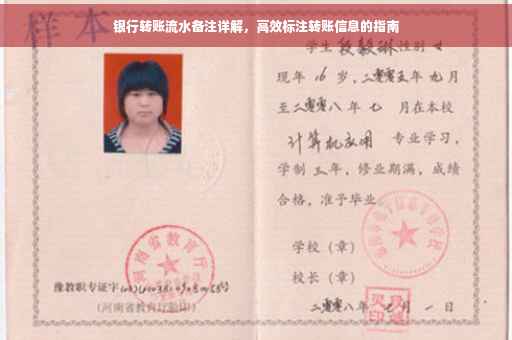 银行转账流水备注详解，高效标注转账信息的指南
样本
学生 段毅琳 性别 女
现年 16 岁，二零零五年 九 月
至二零零八年 七 月在本校
计算机应用 专业学习，
学制 三 年，修业期满，成绩
合格，准予毕业。
学校（章）
校长（章）
二零零八年 七 月 一 日
河南省教育厅
豫教职专证字
（河南省教育厅验印）